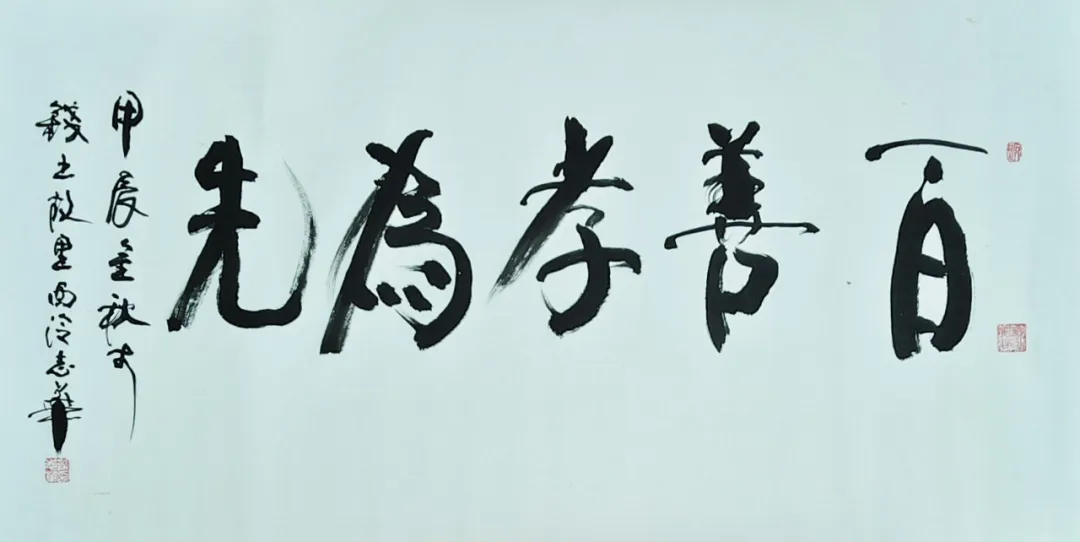 百善孝為先
甲辰金秋書
錢王故里西泠志華